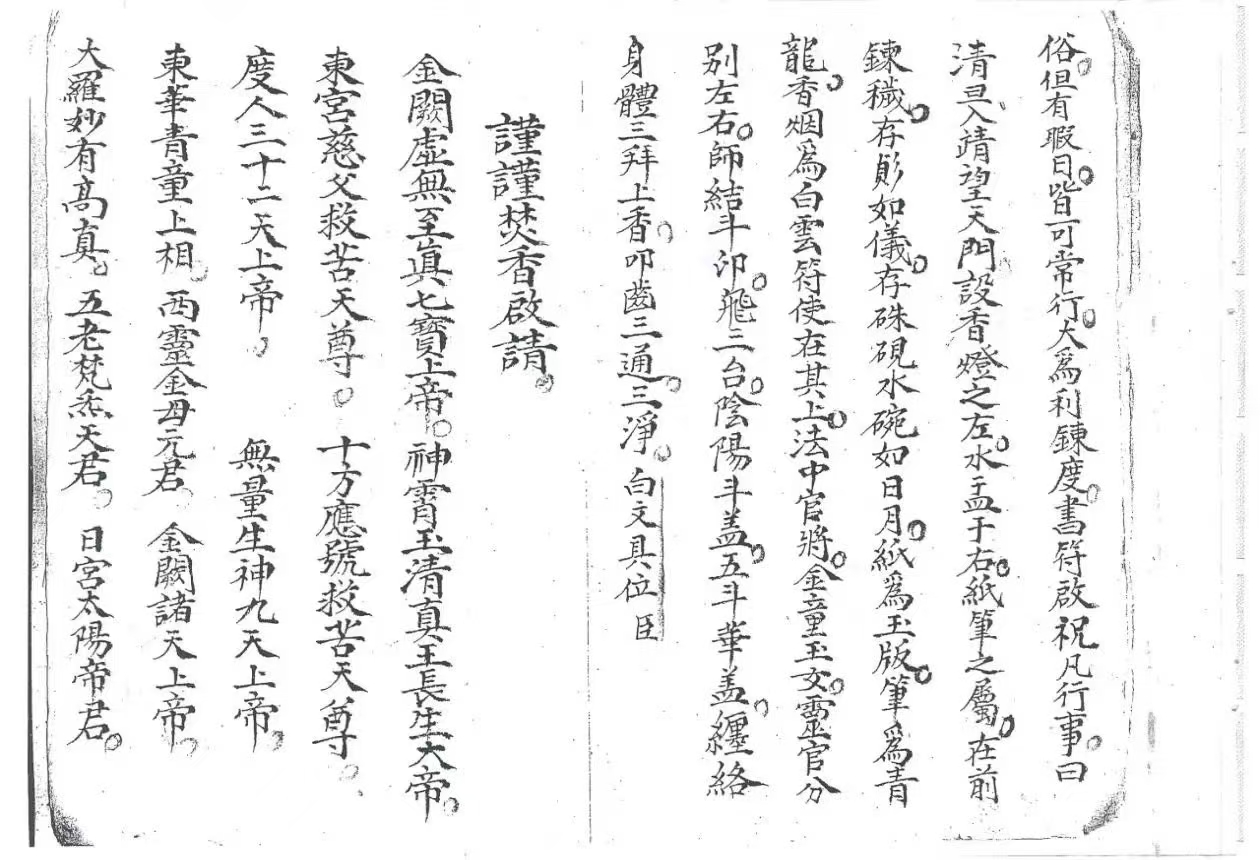 俗。但有暇日。皆可常行。大為利錬度。書符啟祝凡行事。曰
清旦入靖望天門設香燈之左。水盂于右。紙筆之屬。在前
錬穢。存𠒎如儀。存硃硯水碗如日月。紙為玉版。筆為青
龍。香烟為白雲符使在其上。法中官將。金童玉女。靈官分
別左右。師結斗印。飛三台。陰陽斗盖。五斗華盖。纏絡
身體三拜上香。叩齒三通。三淨。白文具位臣
謹謹焚香啟請。
金闕虛無至眞七寶上帝。神霄玉清真王長生大帝。
東宮慈父救苦天尊。十方應號救苦天尊。
度人三十二天上帝。無量生神九天上帝。
東華青童上相。西靈金母元君。金闕諸天上帝。
大羅妙有高真。五老梵炁天君。日宮太陽帝君。